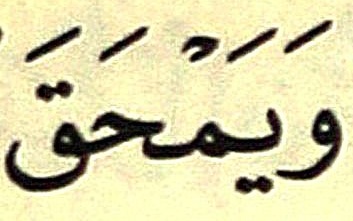 وَيَمْحَقَ